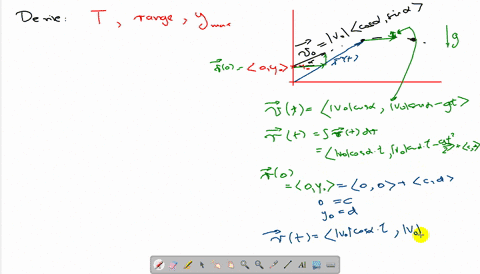 Derive: T, range, y_max
v⃗₀ = |v₀|<cosα, sinα>
r⃗(0) = <0, y₀>
α
r⃗(t)
↓g
v⃗(t) = <|v₀|cosα, |v₀|sinα - gt>
r⃗(t) = ∫ v⃗(t) dt
= <|v₀|cosα·t, |v₀|sinα·t - gt²/2> + <c, d>
r⃗(0)
= <0, y₀> = <0, 0> + <c, d>
0 = c
y₀ = d
r⃗(t) = <|v₀|cosα·t, |v₀|